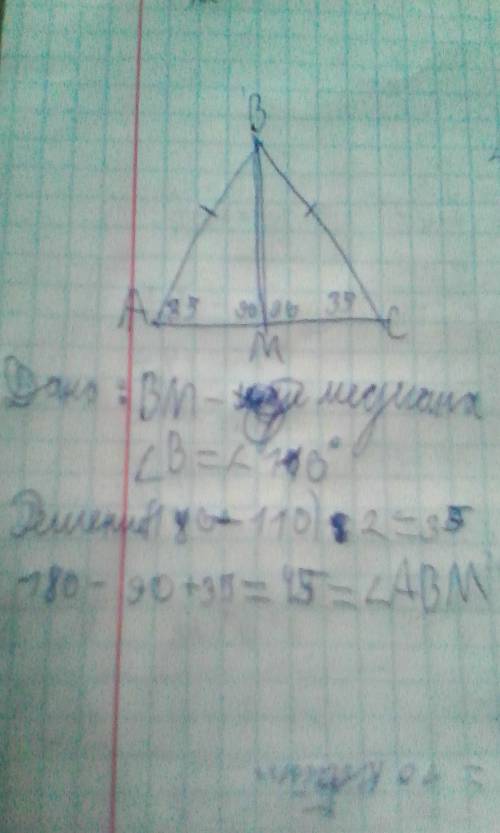 B
A 35 90 90 35 C
M
Дано: BM - медиана
∠B = ∠ 110°
Решение (180 - 110) : 2 = 35
180 - 90 + 35 = 45 = ∠ABM